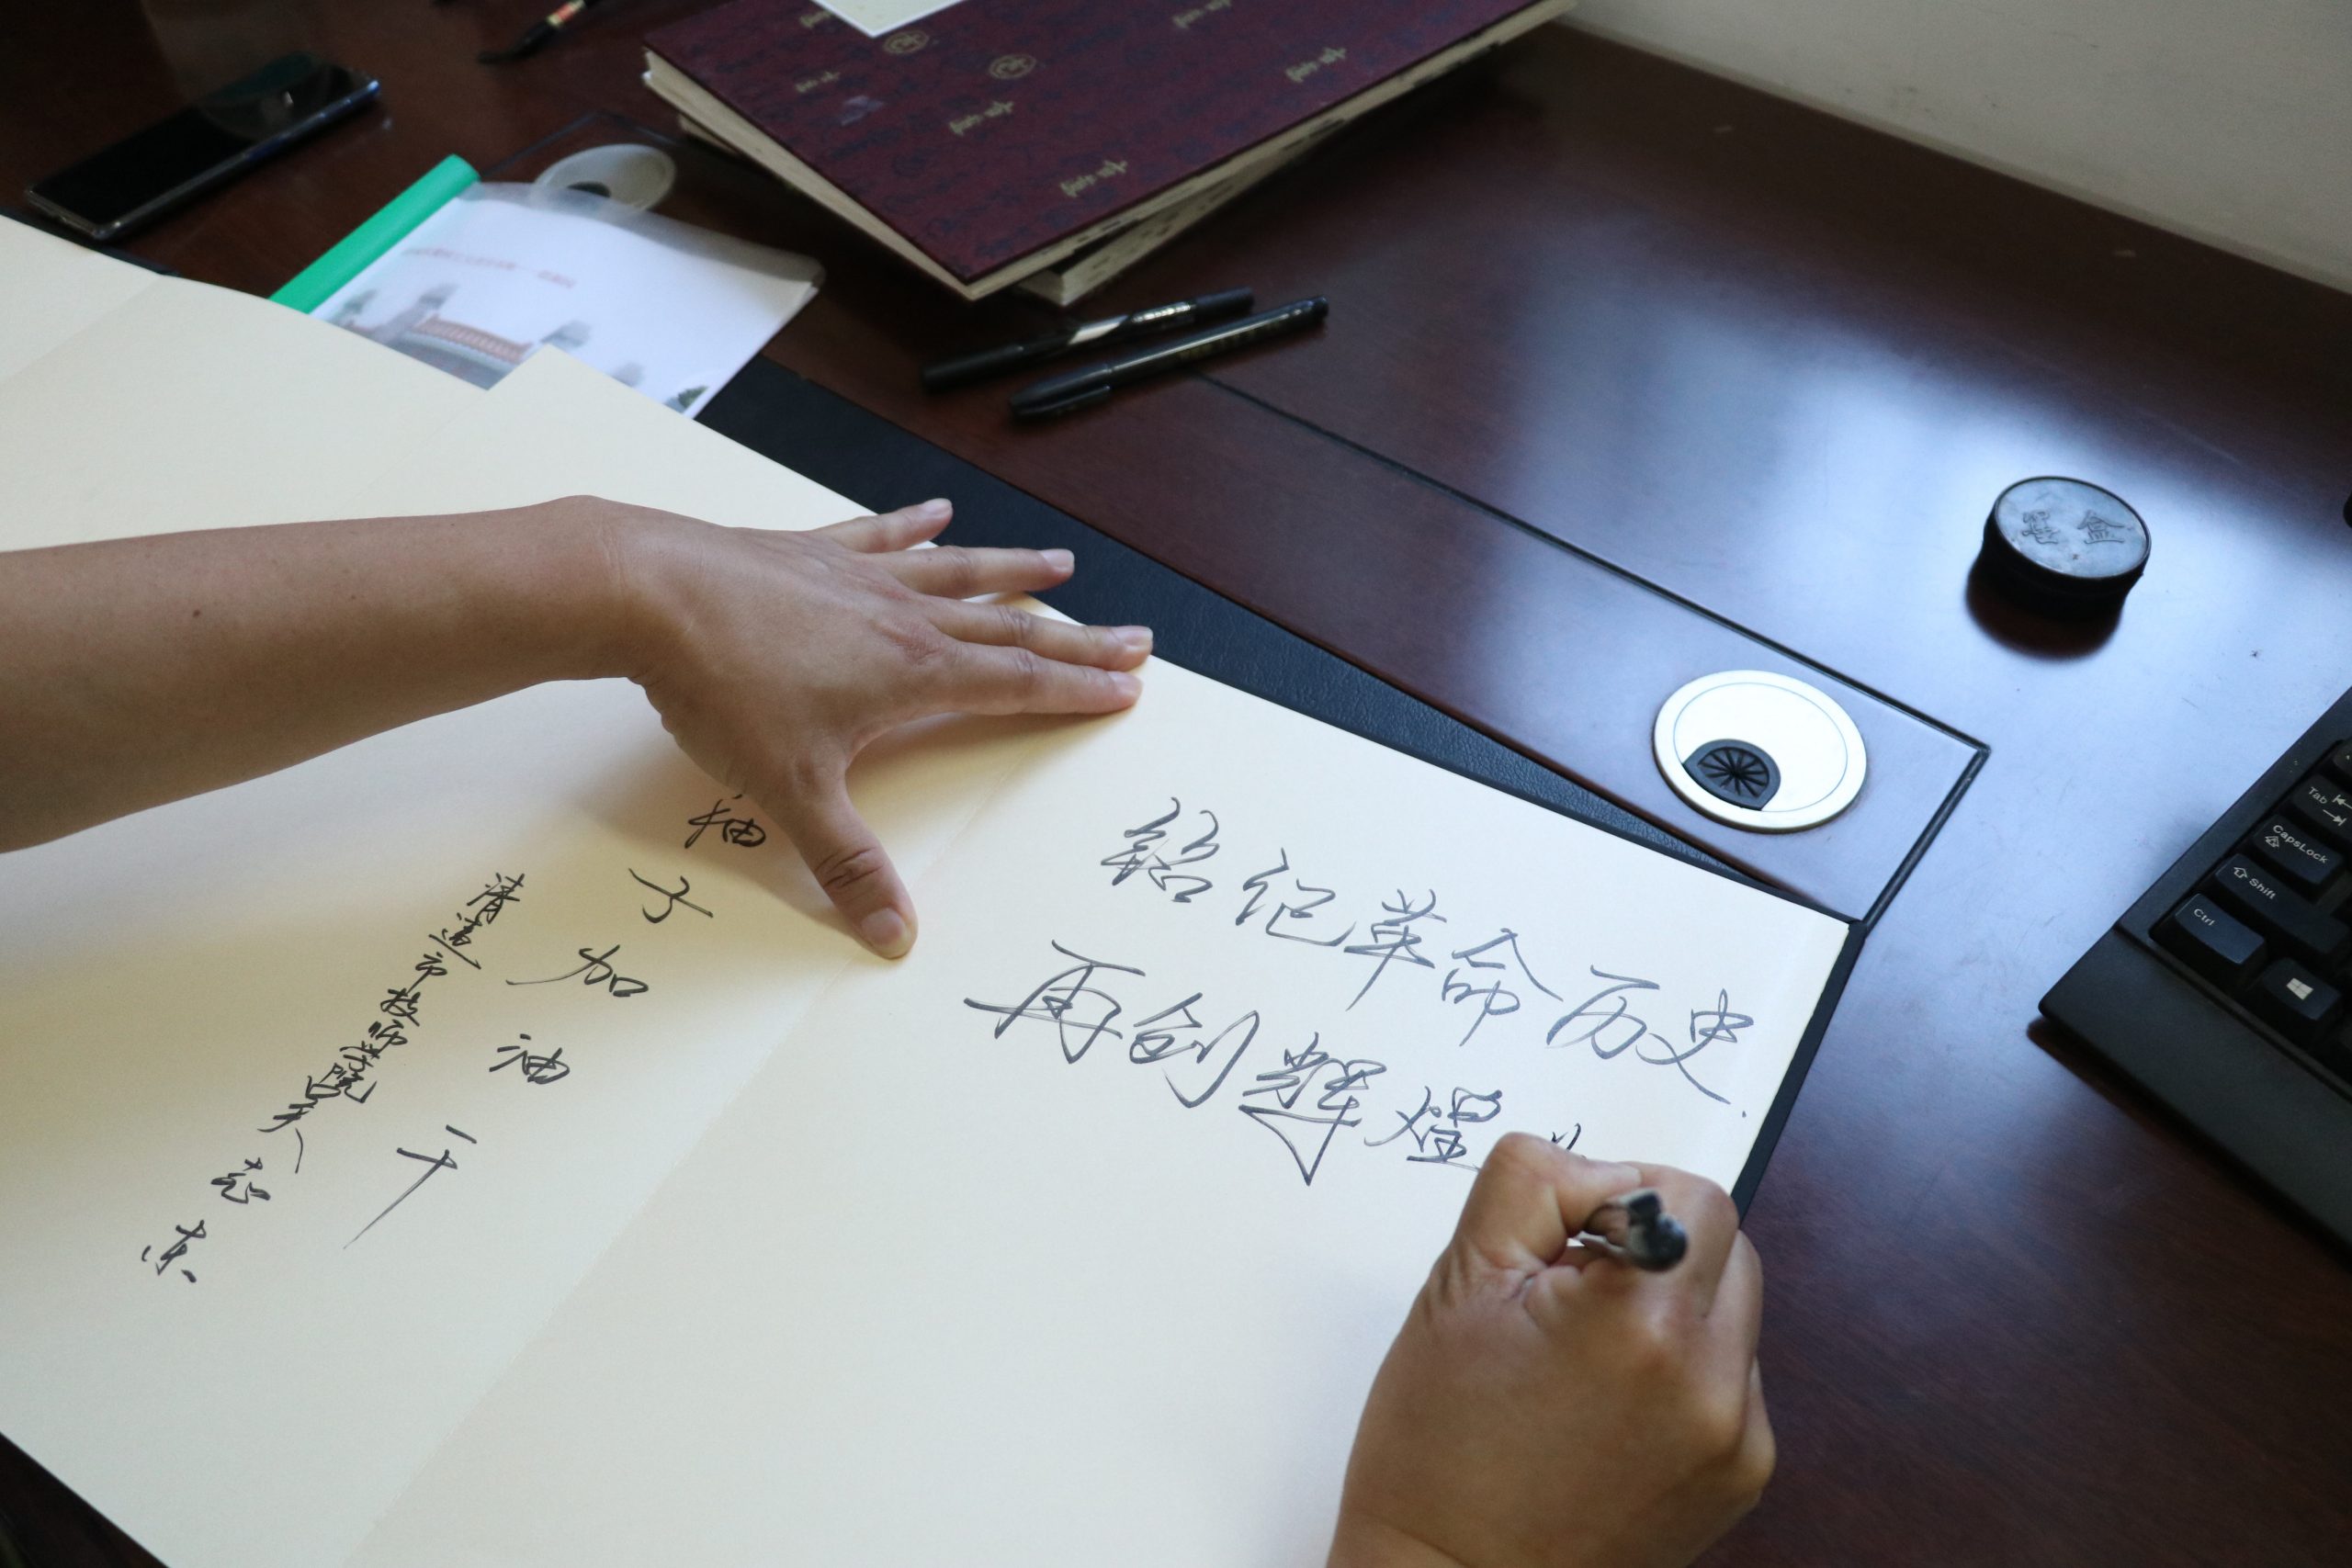 铭记革命历史
再创辉煌
袖子加油干
清远市技师学院吴志东
墨盒
Tab
CapsLock
Shift
Ctrl